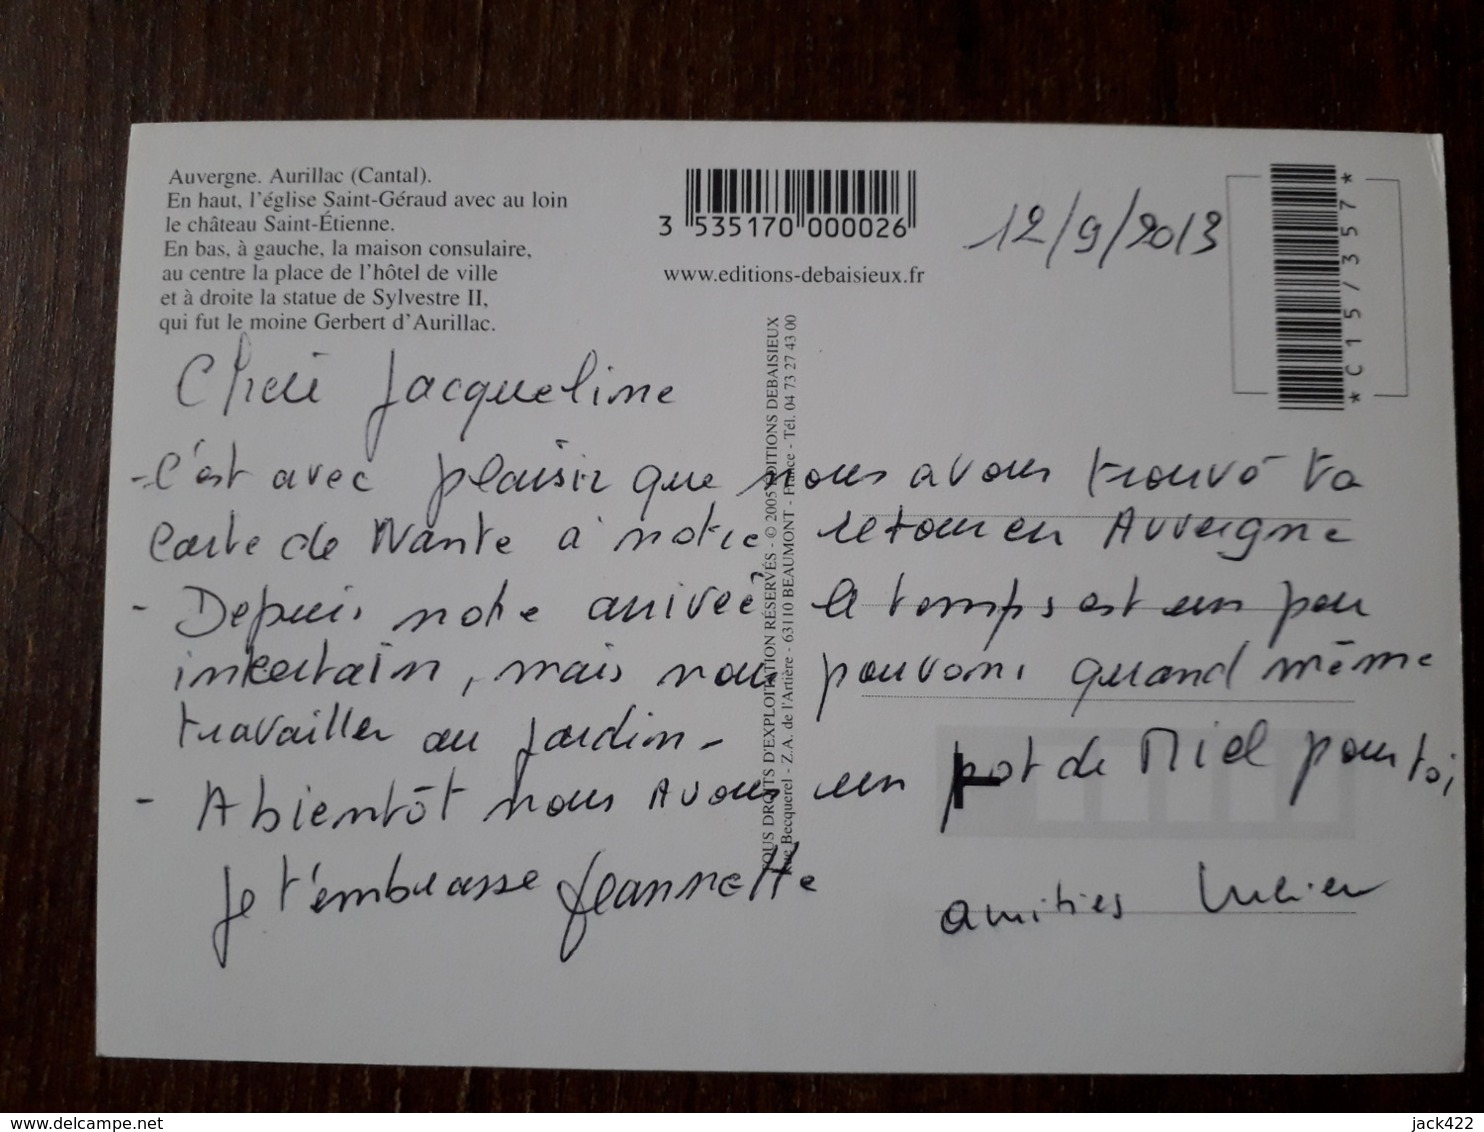 Auvergne. Aurillac (Cantal).
En haut, l'église Saint-Géraud avec au loin
le château Saint-Étienne.
En bas, à gauche, la maison consulaire,
au centre la place de l'hôtel de ville
et à droite la statue de Sylvestre II,
qui fut le moine Gerbert d'Aurillac.
3 535170 000026
www.editions-debaisieux.fr
12/9/2013
*C15/357*
TOUS DROITS D'EXPLOITATION RÉSERVÉS - © 2005 EDITIONS DEBAISIEUX
Rue Becquerel - Z.A. de l'Artière - 63110 BEAUMONT - France - Tél. 04 73 27 43 00
Jacqueline
- C'est avec plaisir que nous avons trouvé ta
carte de Nante à notre retour en Auvergne
- Depuis notre arrivée le temps est un peu
, mais nous pouvons quand même
travailler au jardin -
- A bientôt nous avons un pot de Miel pour toi,
je t'embrasse Jeannette
amitiés Lucien
delcampe.net
jack422